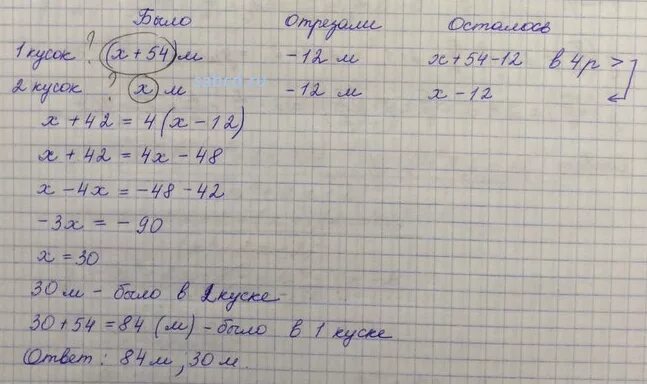 Было Отрезали Осталось
1 кусок ? (x + 54) м -12 м x + 54 - 12 в 4 р >
2 кусок ? x м -12 м x - 12
x + 42 = 4 (x - 12)
x + 42 = 4x - 48
x - 4x = -48 - 42
-3x = -90
x = 30
30 м - было в 2 куске
30 + 54 = 84 (м) - было в 1 куске
Ответ: 84 м, 30 м.